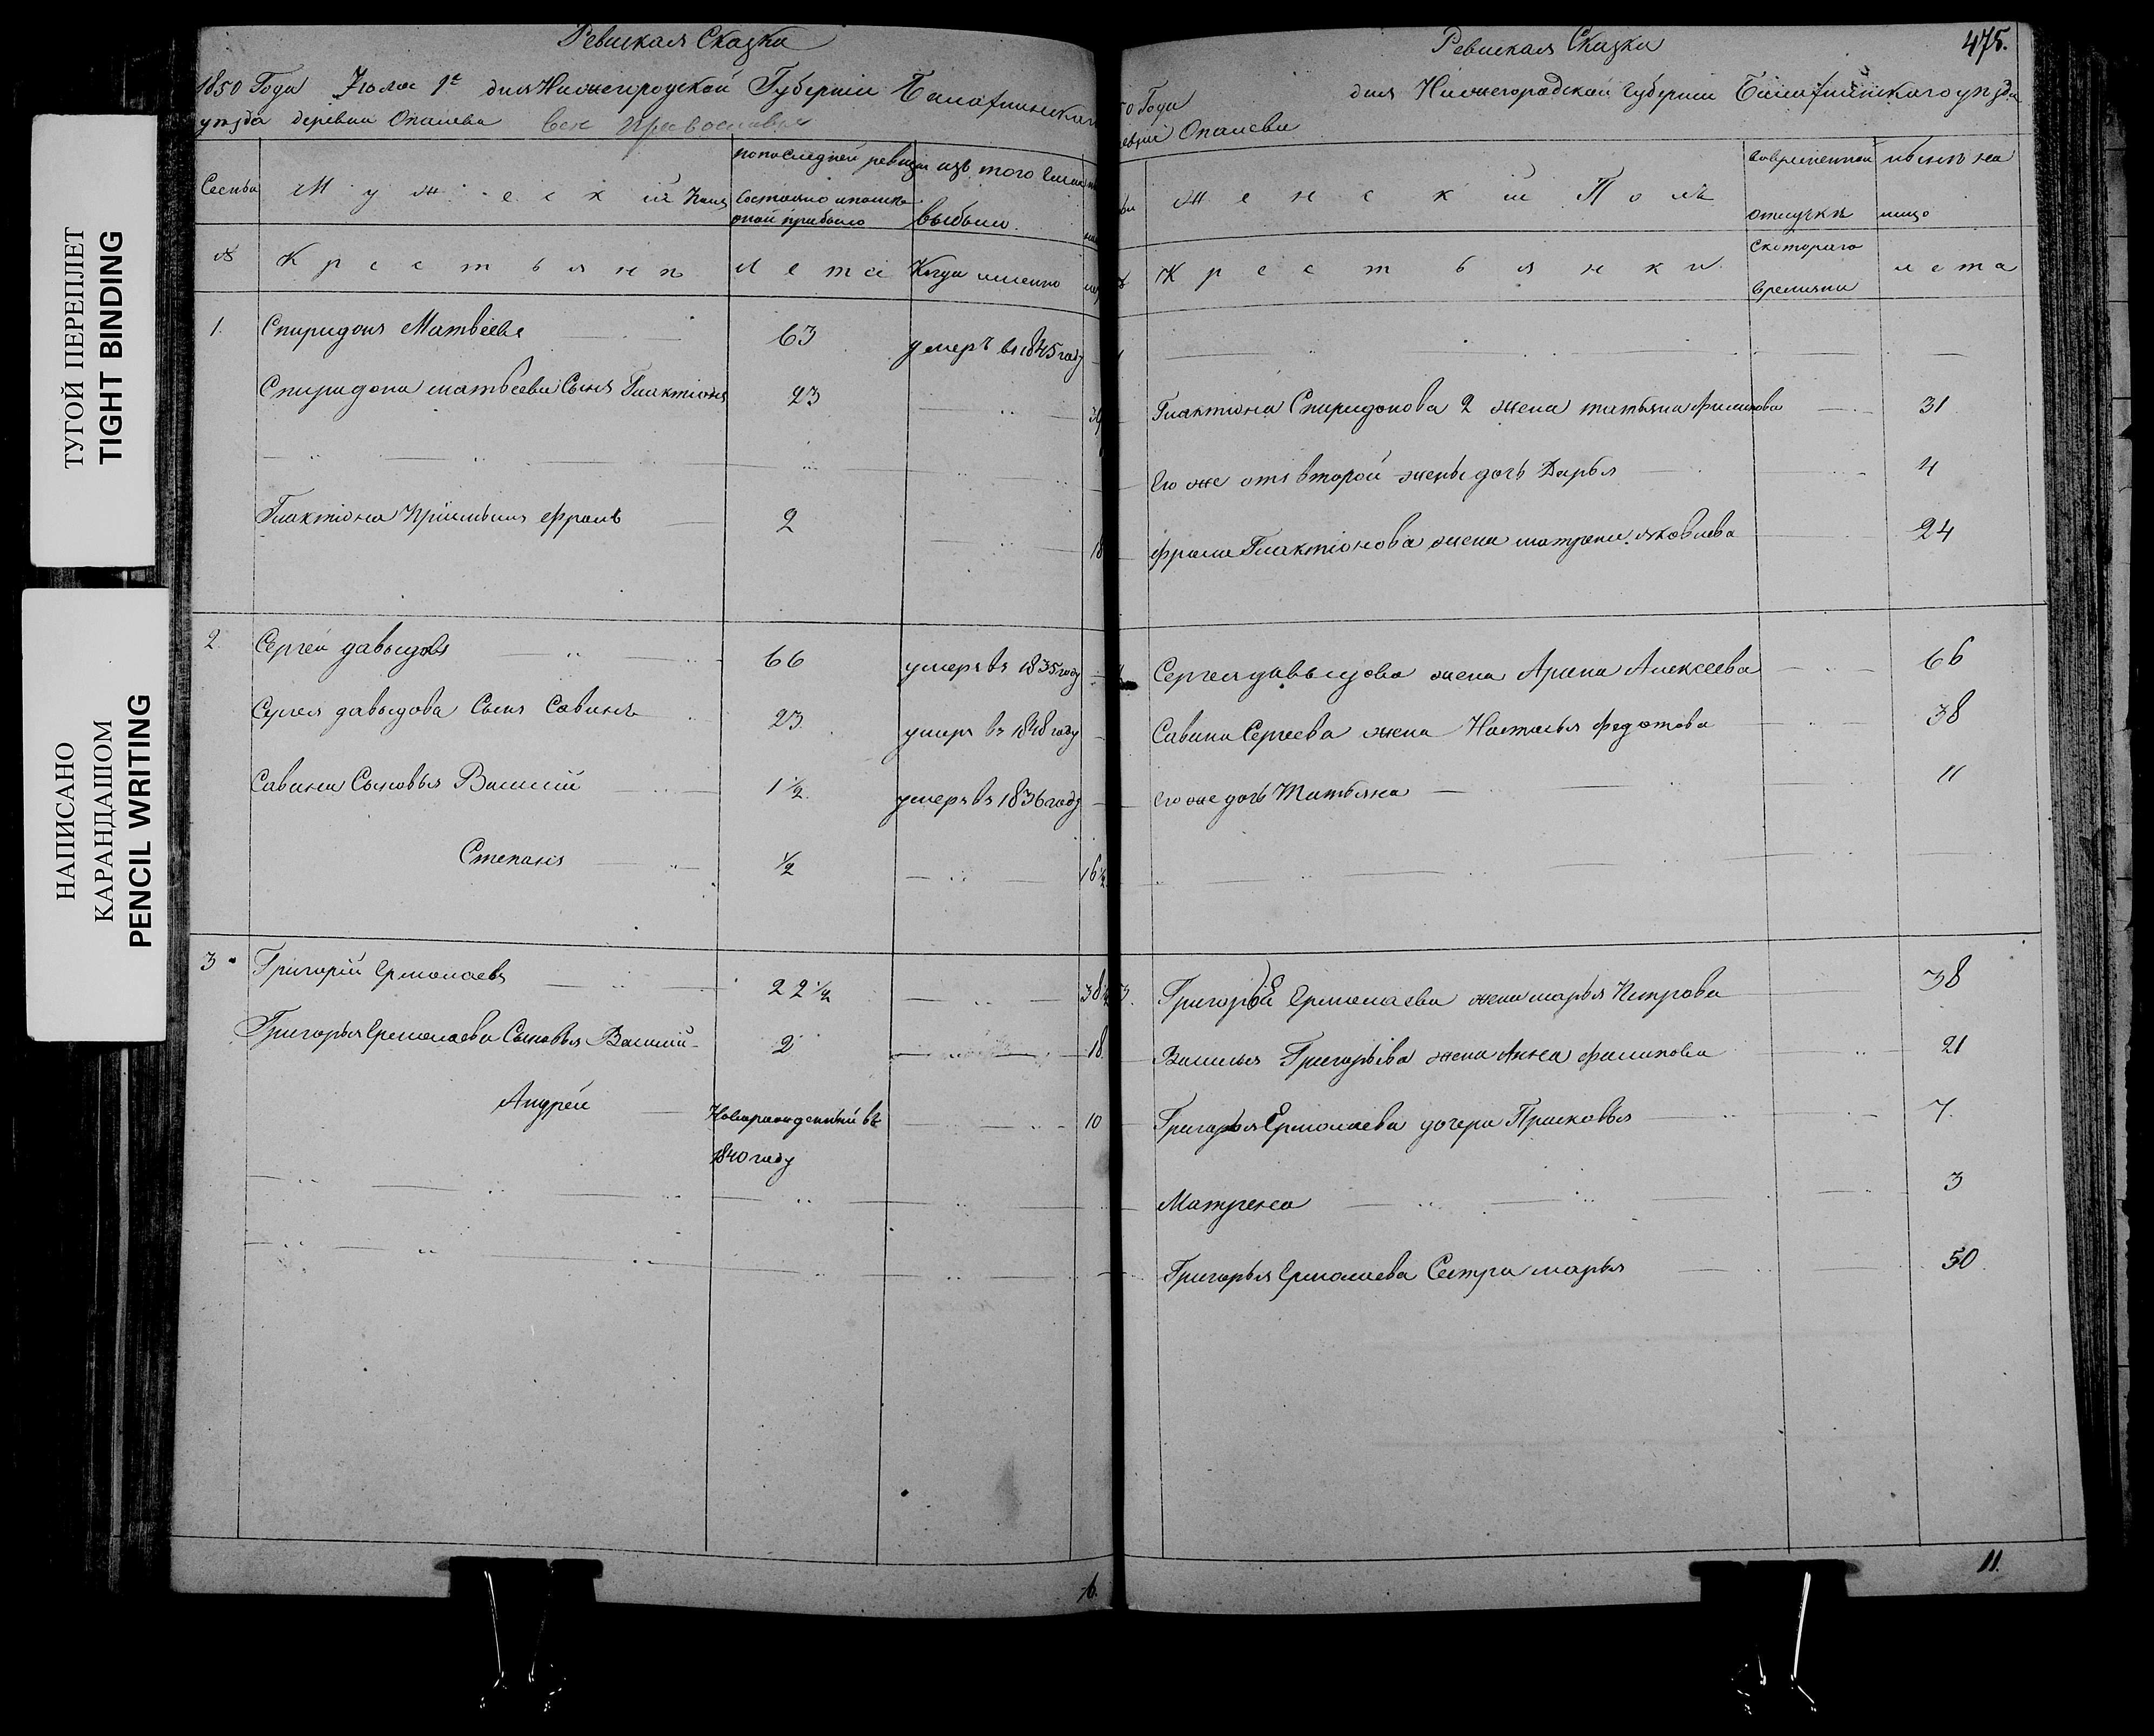 ТУГОЙ ПЕРЕПЛЕТ
TIGHT BINDING
НАПИСАНО
КАРАНДАШОМ
PENCIL WRITING
Ревиская Сказка
1850 Года Июля 9е дня Нижегородской Губернии Балахнинскаго
уѣзда деревни Опалева все Православные
Семьи
Мужеский Полъ
по последней ревизии
состояло и после
оной прибыло
изъ того числа
выбыло
№
Крестьянъ
Лета
Когда именно
1. Спиридонъ Матвѣевъ 63 умеръ въ 1845 году
Спиридона матвеева Сынъ Галактіонъ 23
Галактіона Фролъ 2 18
2 Сергей давыдовъ 66 умеръ въ 1835 году
Сергея давыдова Сынъ Савинъ 23 умеръ въ 1848 году
Савина Сыновья Василий 1½ умеръ въ 1836 году
Степанъ ½ 16½
3 Григорій Ермолаевъ 22½ 38½
Григорья Ермолаева Сыновья Василий 2 18
Андрей Новорожденный въ 10
1840 году
6.
Ревиская Сказка 475.
50 Года дня Нижегородской Губернии Балахнинскаго уѣзда
Опалева
Женский Полъ
во временной
отлучкѣ
нынѣ на
лицо
Крестьянки
С котораго
времяни
лета
Галактіона Спиридонова 2 жена татьяна Филипова 31
Его же отъ второй жены дочь Дарья 4
Фрола Галактіонова жена матрена Яковлева 24
Сергея давыдова жена Арина Алексеева 66
Савина Сергеева жена Настасья Федотова 38
Его же дочь Татьяна 11
3. Григорья Ермолаева жена марья Петрова 38
Василья Григорьева жена Анна Филипова 21
Григорья Ермолаева дочери Прасковья 7.
Матрена 3
Григорья Ермолаева Сестра марья 50
11.